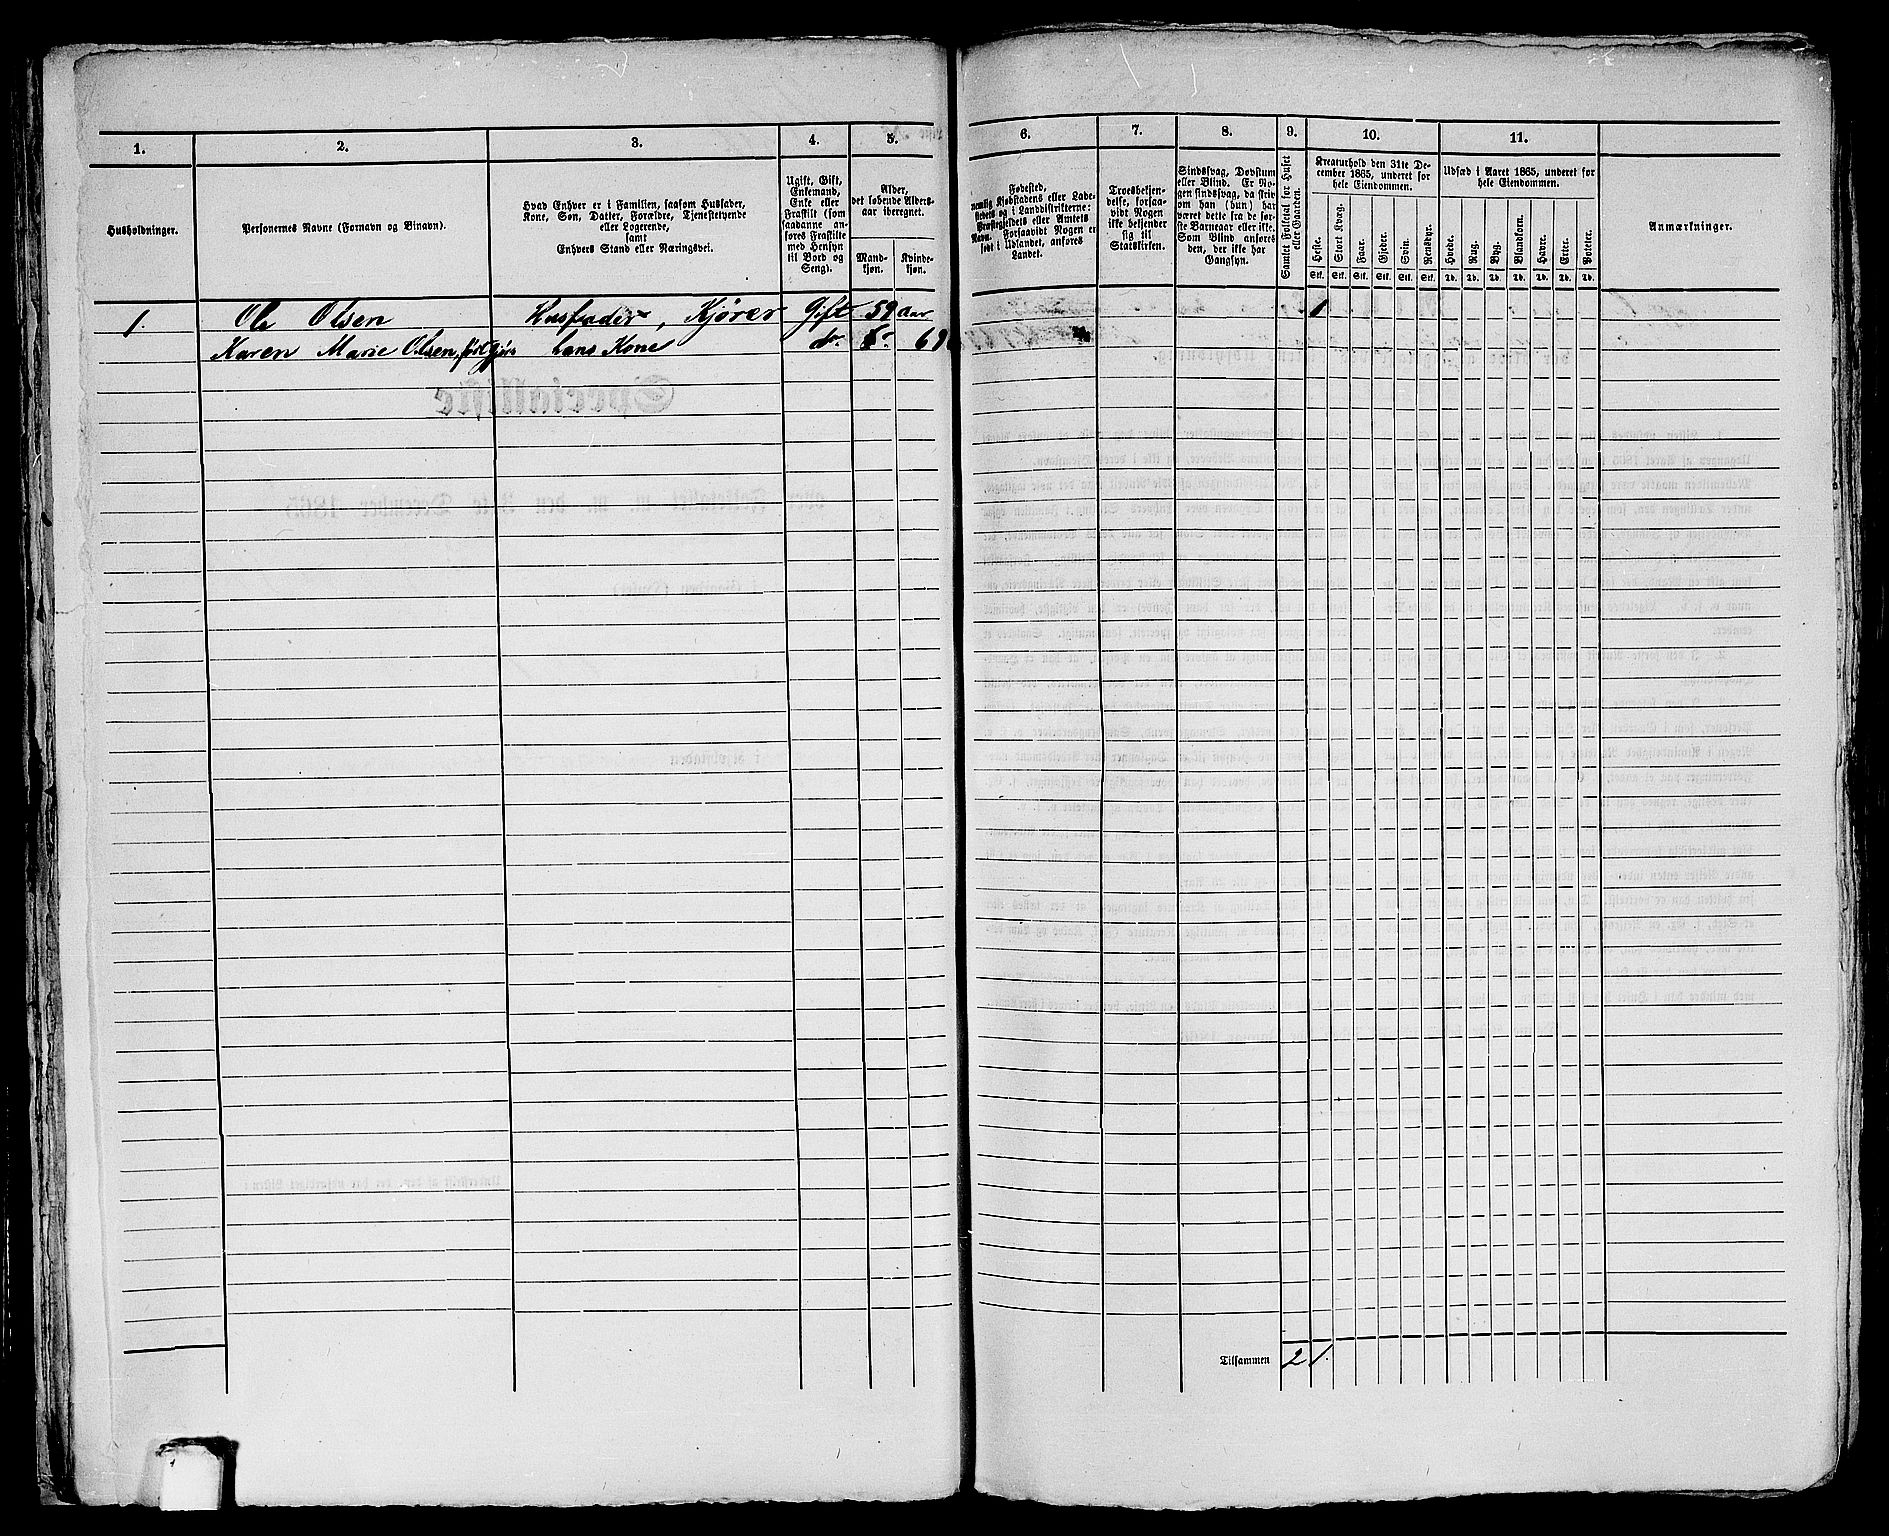 1.
2.
3.
4.
5.
Husholdninger.
Personernes Navne (Fornavn og Binavn).
Hvad Enhver er i Familien, saasom Husfader,
Kone, Søn, Datter, Forældre, Tjenestetyende
eller Logerende,
samt
Enhvers Stand eller Næringsvei.
Ugift, Gift,
Enkemand,
Enke eller
Fraskilt (som
saadanne an-
føres Fraskilte
med Hensyn
til Bord og
Seng).
Alder,
det løbende Alders-
aar iberegnet.
Mand-
kjøn.
Kvinde-
kjøn.
1. Ole Olsen Husfader, Kjører Gift 59 aar
Karen Marie Olsen, født hans Kone do.
6.
7.
8.
9.
10.
11.
Fødested,
nemlig Kjøbstadens eller Lade-
stedets og i Landdistrikterne:
Præstegjeldets eller Amtets
Navn. Forsaavidt Nogen er
født i Udlandet, anføres
Landet.
Troesbekjen-
delse, forsaa-
vidt Nogen
ikke bekjender
sig til
Statskirken.
Sindssvag, Døvstum
eller Blind. Er No-
gen sindssvag, da skriv
om han (hun) har
været dette fra de før-
ste Barneaar eller ikke.
Som Blind anføres
den, der ikke har
Gangsyn.
Samlet Folketal for Huset
eller Gaarden.
Kreaturhold den 31te De-
cember 1865, underet for
hele Eiendommen.
Heste.
Stort Kvæg.
Faar.
Gjeder.
Svin.
Rensdyr.
Stk. Stk. Stk. Stk. Stk. Stk.
Udsæd i Aaret 1865, underet for
hele Eiendommen.
Hvede.
Rug.
Byg.
Blandkorn.
Havre.
Erter.
Poteter.
Td. Td. Td. Td. Td. Td. Td.
Anmærkninger.
1
Tilsammen 2 1.